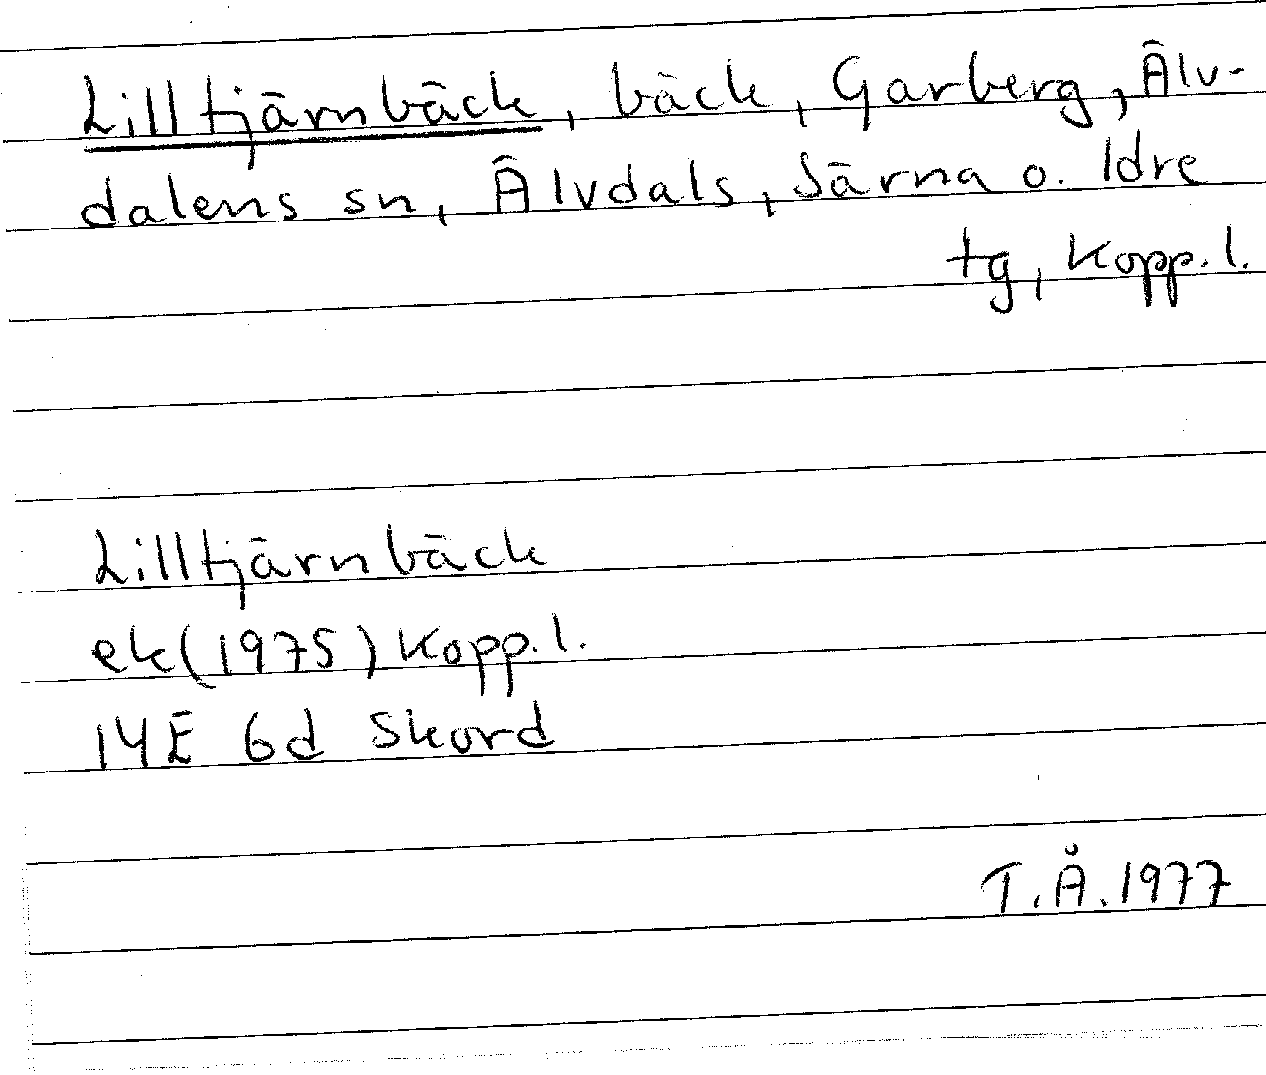 Lilltjärnbäck, bäck, Garberg, Älv-
dalens sn, Älvdals, Särna o. Idre
tg, Kopp. l.
Lilltjärnbäck
ek(1975) Kopp. l.
14E 6d Skord
T.Å.1977